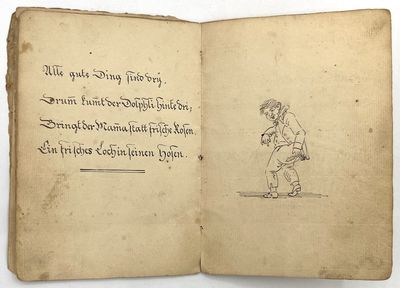 Alle gute Ding sind drÿ.
Drum kum̄t der Dolphli hinte dri;
Bringt der Mam̄a statt frische Rosen
Ein frisches Loch in seinen Hosen.